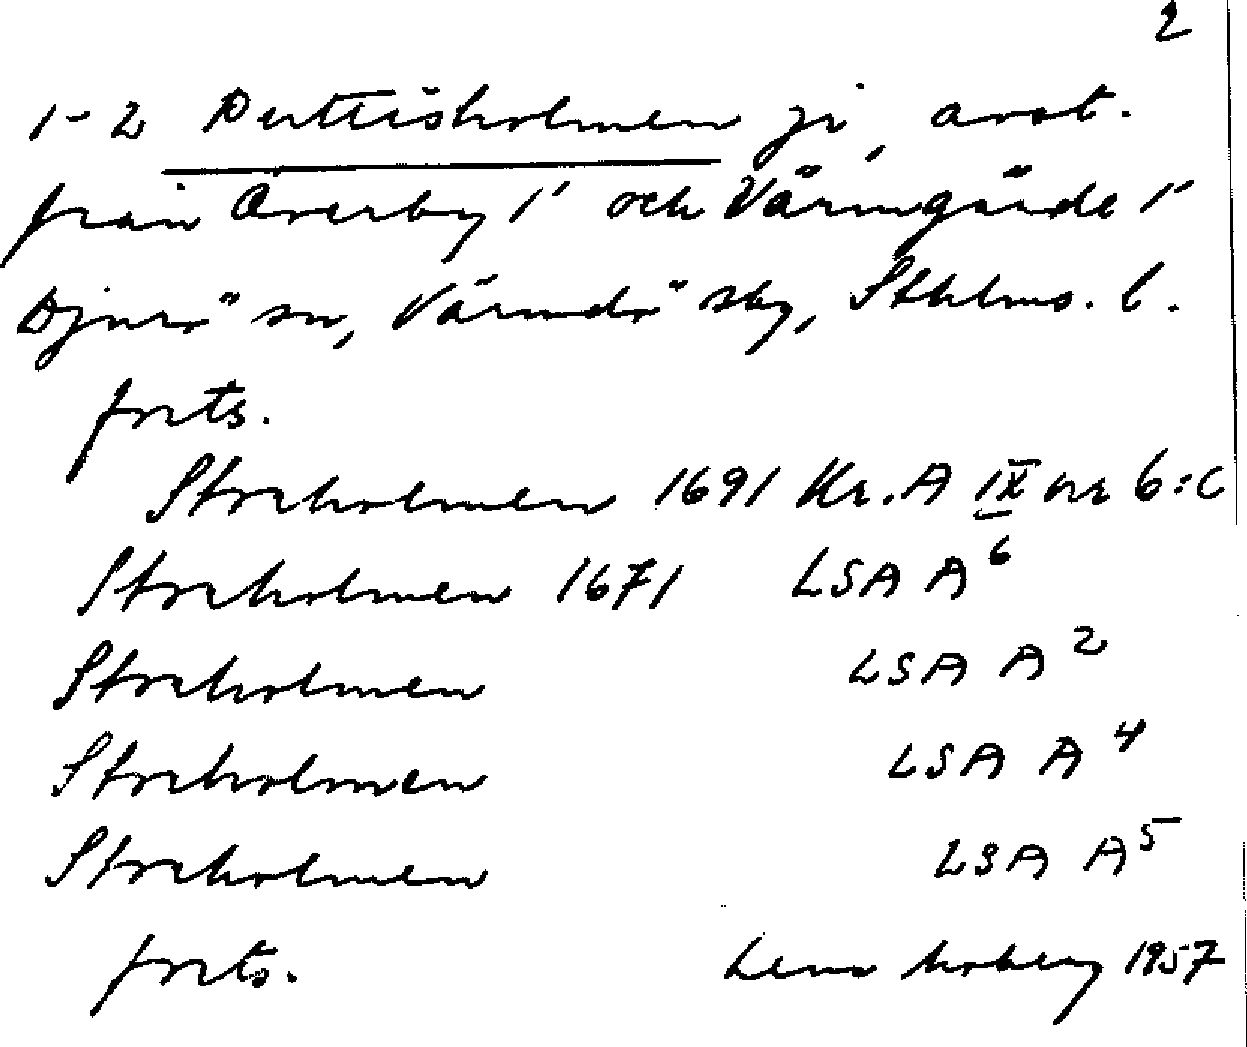 2
1-2 Puttisholmen ji, avst.
från Överby 1' och Värmgärde 1'
Djurö sn, Värmdö skg, Sthlms. l.
forts.
Storholmen 1691 Kr. A IX nr 6:c
Storholmen 1671 LSA A⁶
Storholmen LSA A²
Storholmen LSA A⁴
Storholmen LSA A⁵
forts. Lena Moberg 1957